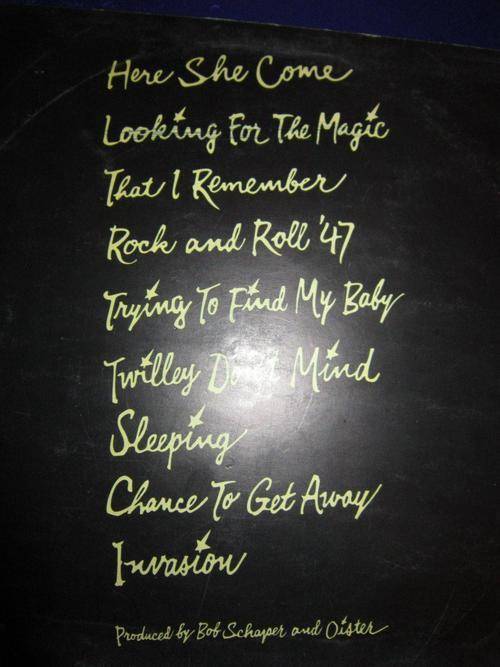 Here She Come
Looking For The Magic
That I Remember
Rock and Roll '47
Trying To Find My Baby
Twilley Don't Mind
Sleeping
Chance To Get Away
Invasion
Produced by Bob Schaper and Oister